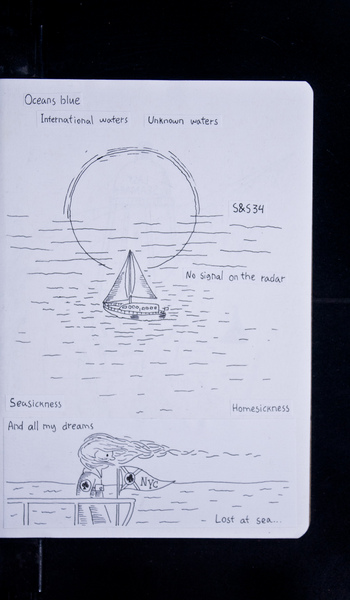 Oceans blue
International waters Unknown waters
S&S34
No signal on the radar
Seasickness
Homesickness
And all my dreams
NYC
Lost at sea...